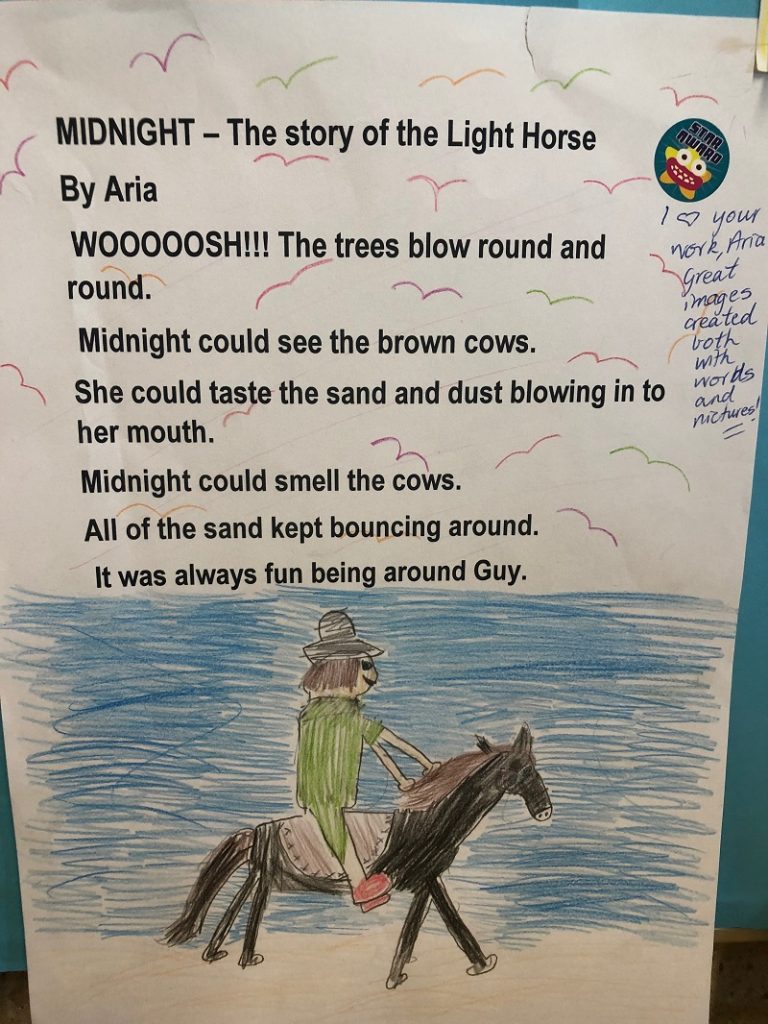 MIDNIGHT – The story of the Light Horse
By Aria
WOOOOOSH!!! The trees blow round and
round.
Midnight could see the brown cows.
She could taste the sand and dust blowing in to
her mouth.
Midnight could smell the cows.
All of the sand kept bouncing around.
It was always fun being around Guy.
STAR
AWARD
I ♡ your
work, Aria
Great
images
created
both
with
words
and
pictures!